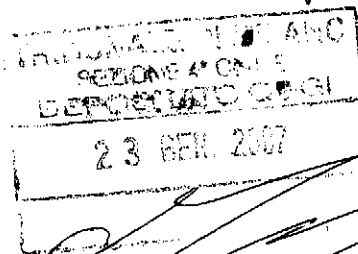 TRIBUNALE DI MILANO
SEZIONE 4ª CIVILE
DEPOSITATO OGGI
23 GEN. 2007